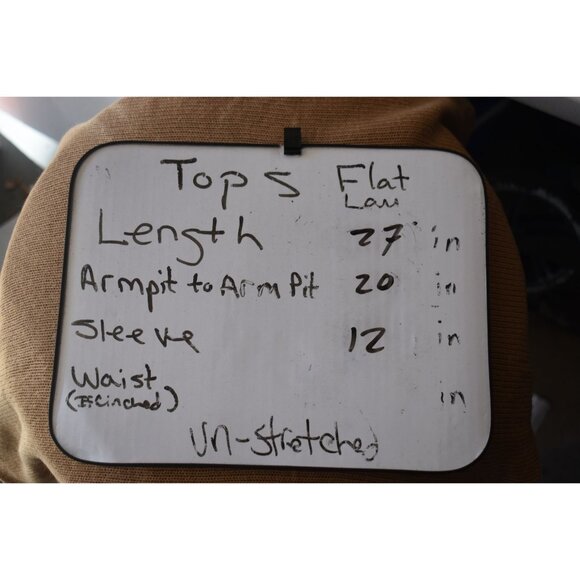 Tops Flat Lay
Length 27 in
Armpit to Arm Pit 20 in
Sleeve 12 in
Waist
(If Cinched) in
Un-stretched